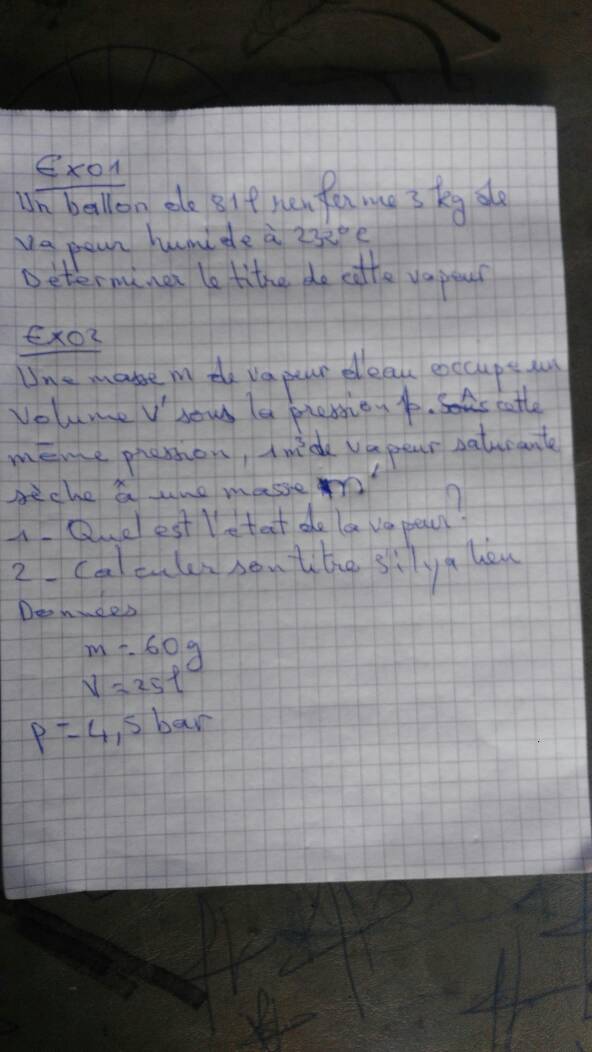 Exo1
Un ballon de 81l renferme 3 kg de
vapeur humide à 232°C
Déterminer le titre de cette vapeur
Exo2
Une masse m de vapeur d'eau occupe un
volume V sous la pression p. Sous cette
même pression, 1m³ de vapeur saturante
sèche â une masse m'
1- Quel est l'état de la vapeur?
2- Calculer son titre s'il y a lieu
Données
m = 60g
V = 25l
p = 4,5 bar